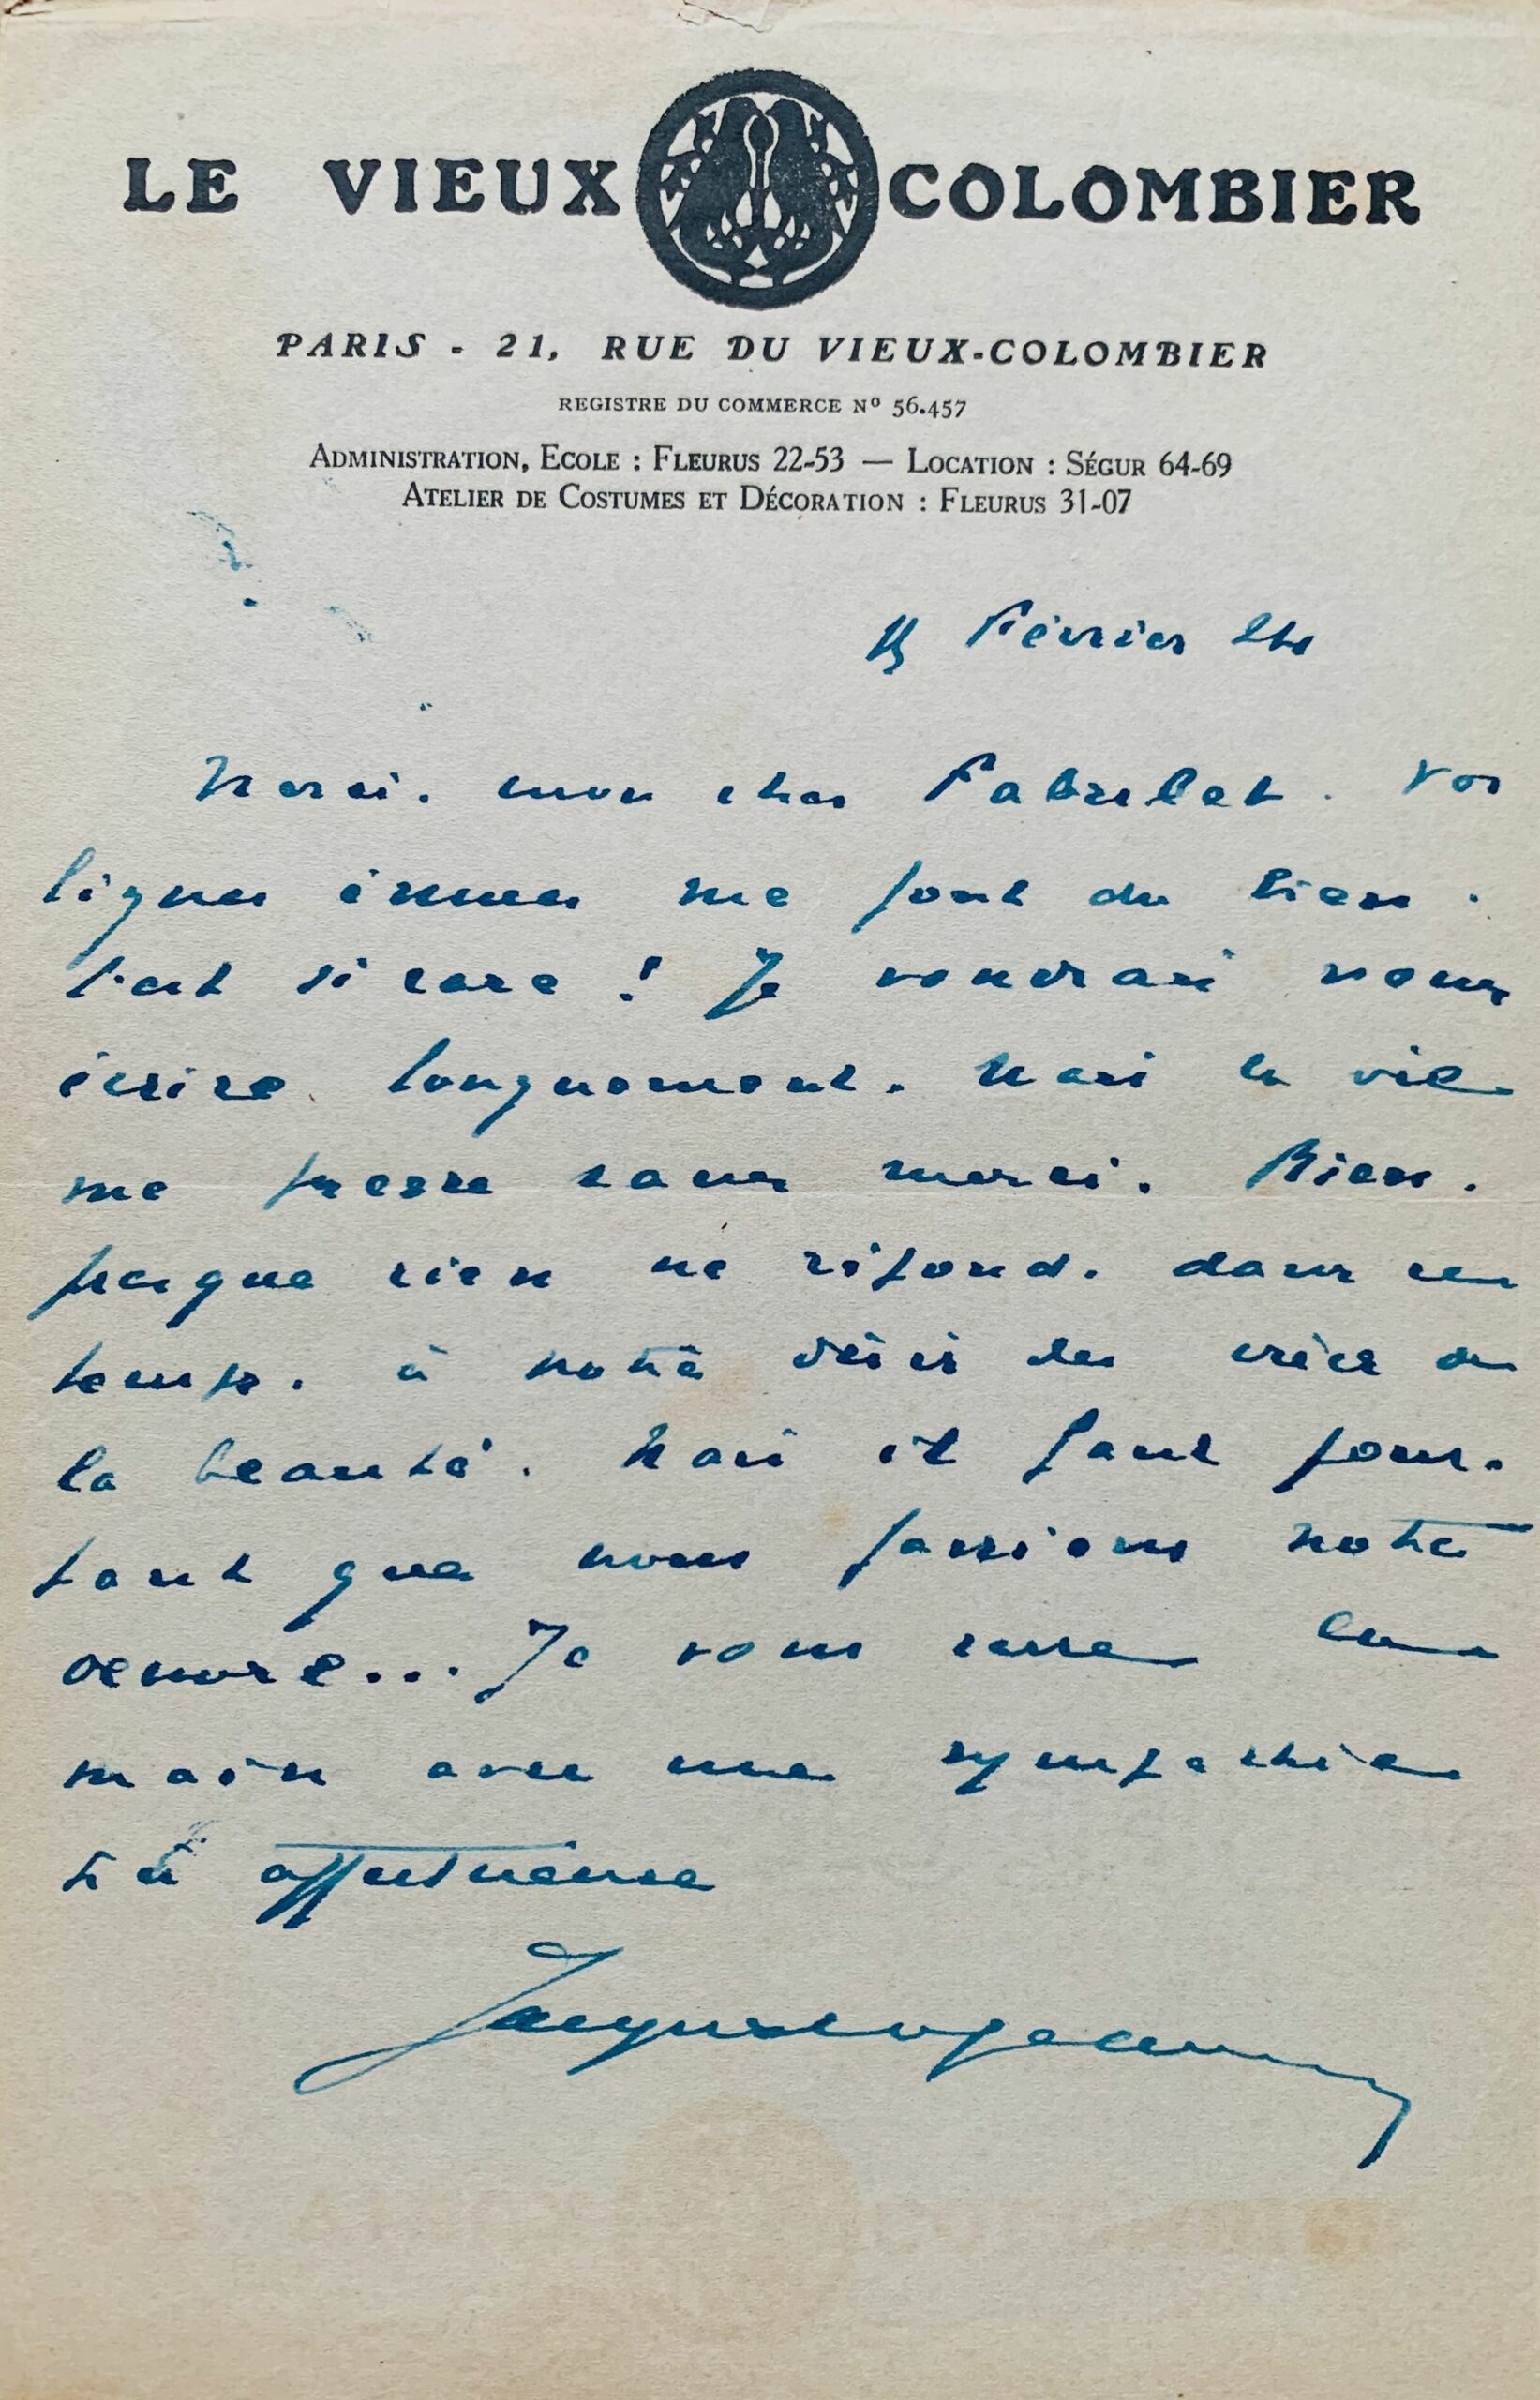 LE VIEUX COLOMBIER
PARIS - 21, RUE DU VIEUX-COLOMBIER
REGISTRE DU COMMERCE Nº 56.457
ADMINISTRATION, ECOLE : FLEURUS 22-53 — LOCATION : SÉGUR 64-69
ATELIER DE COSTUMES ET DÉCORATION : FLEURUS 31-07
15 Février 24
Merci, mon cher Fabulet. Vos
lignes émues me font du bien.
C'est si rare ! Je voudrais vous
écrire longuement. Mais la vie
me presse sans merci. Rien,
presque rien ne répond, dans ce
temps, à notre désir de créer de
la beauté. Mais il faut pour-
tant que nous fassions notre
oeuvre... Je vous serre la
main avec une sympathie
très affectueuse
Jacques Copeau